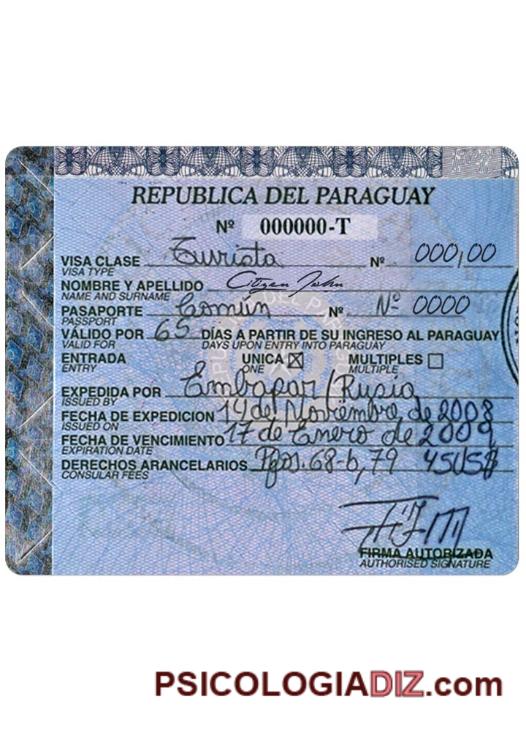 REPUBLICA DEL PARAGUAY
Nº 000000-T
VISA CLASE Turista Nº 000,00
VISA TYPE
NOMBRE Y APELLIDO Citizen John
NAME AND SURNAME
PASAPORTE Común Nº Nº 0000
PASSPORT
VÁLIDO POR 65 DÍAS A PARTIR DE SU INGRESO AL PARAGUAY
VALID FOR DAYS UPON ENTRY INTO PARAGUAY
ENTRADA UNICA ☒ MULTIPLES ☐
ENTRY ONE MULTIPLE
EXPEDIDA POR Embapar/Rusia
ISSUED BY
FECHA DE EXPEDICION 14 de Noviembre de 2008
ISSUED ON
FECHA DE VENCIMIENTO 17 de Enero de 2009
EXPIRATION DATE
DERECHOS ARANCELARIOS 68-b, 79 45US$
CONSULAR FEES
FIRMA AUTORIZADA
AUTHORISED SIGNATURE
PSICOLOGIADIZ.com